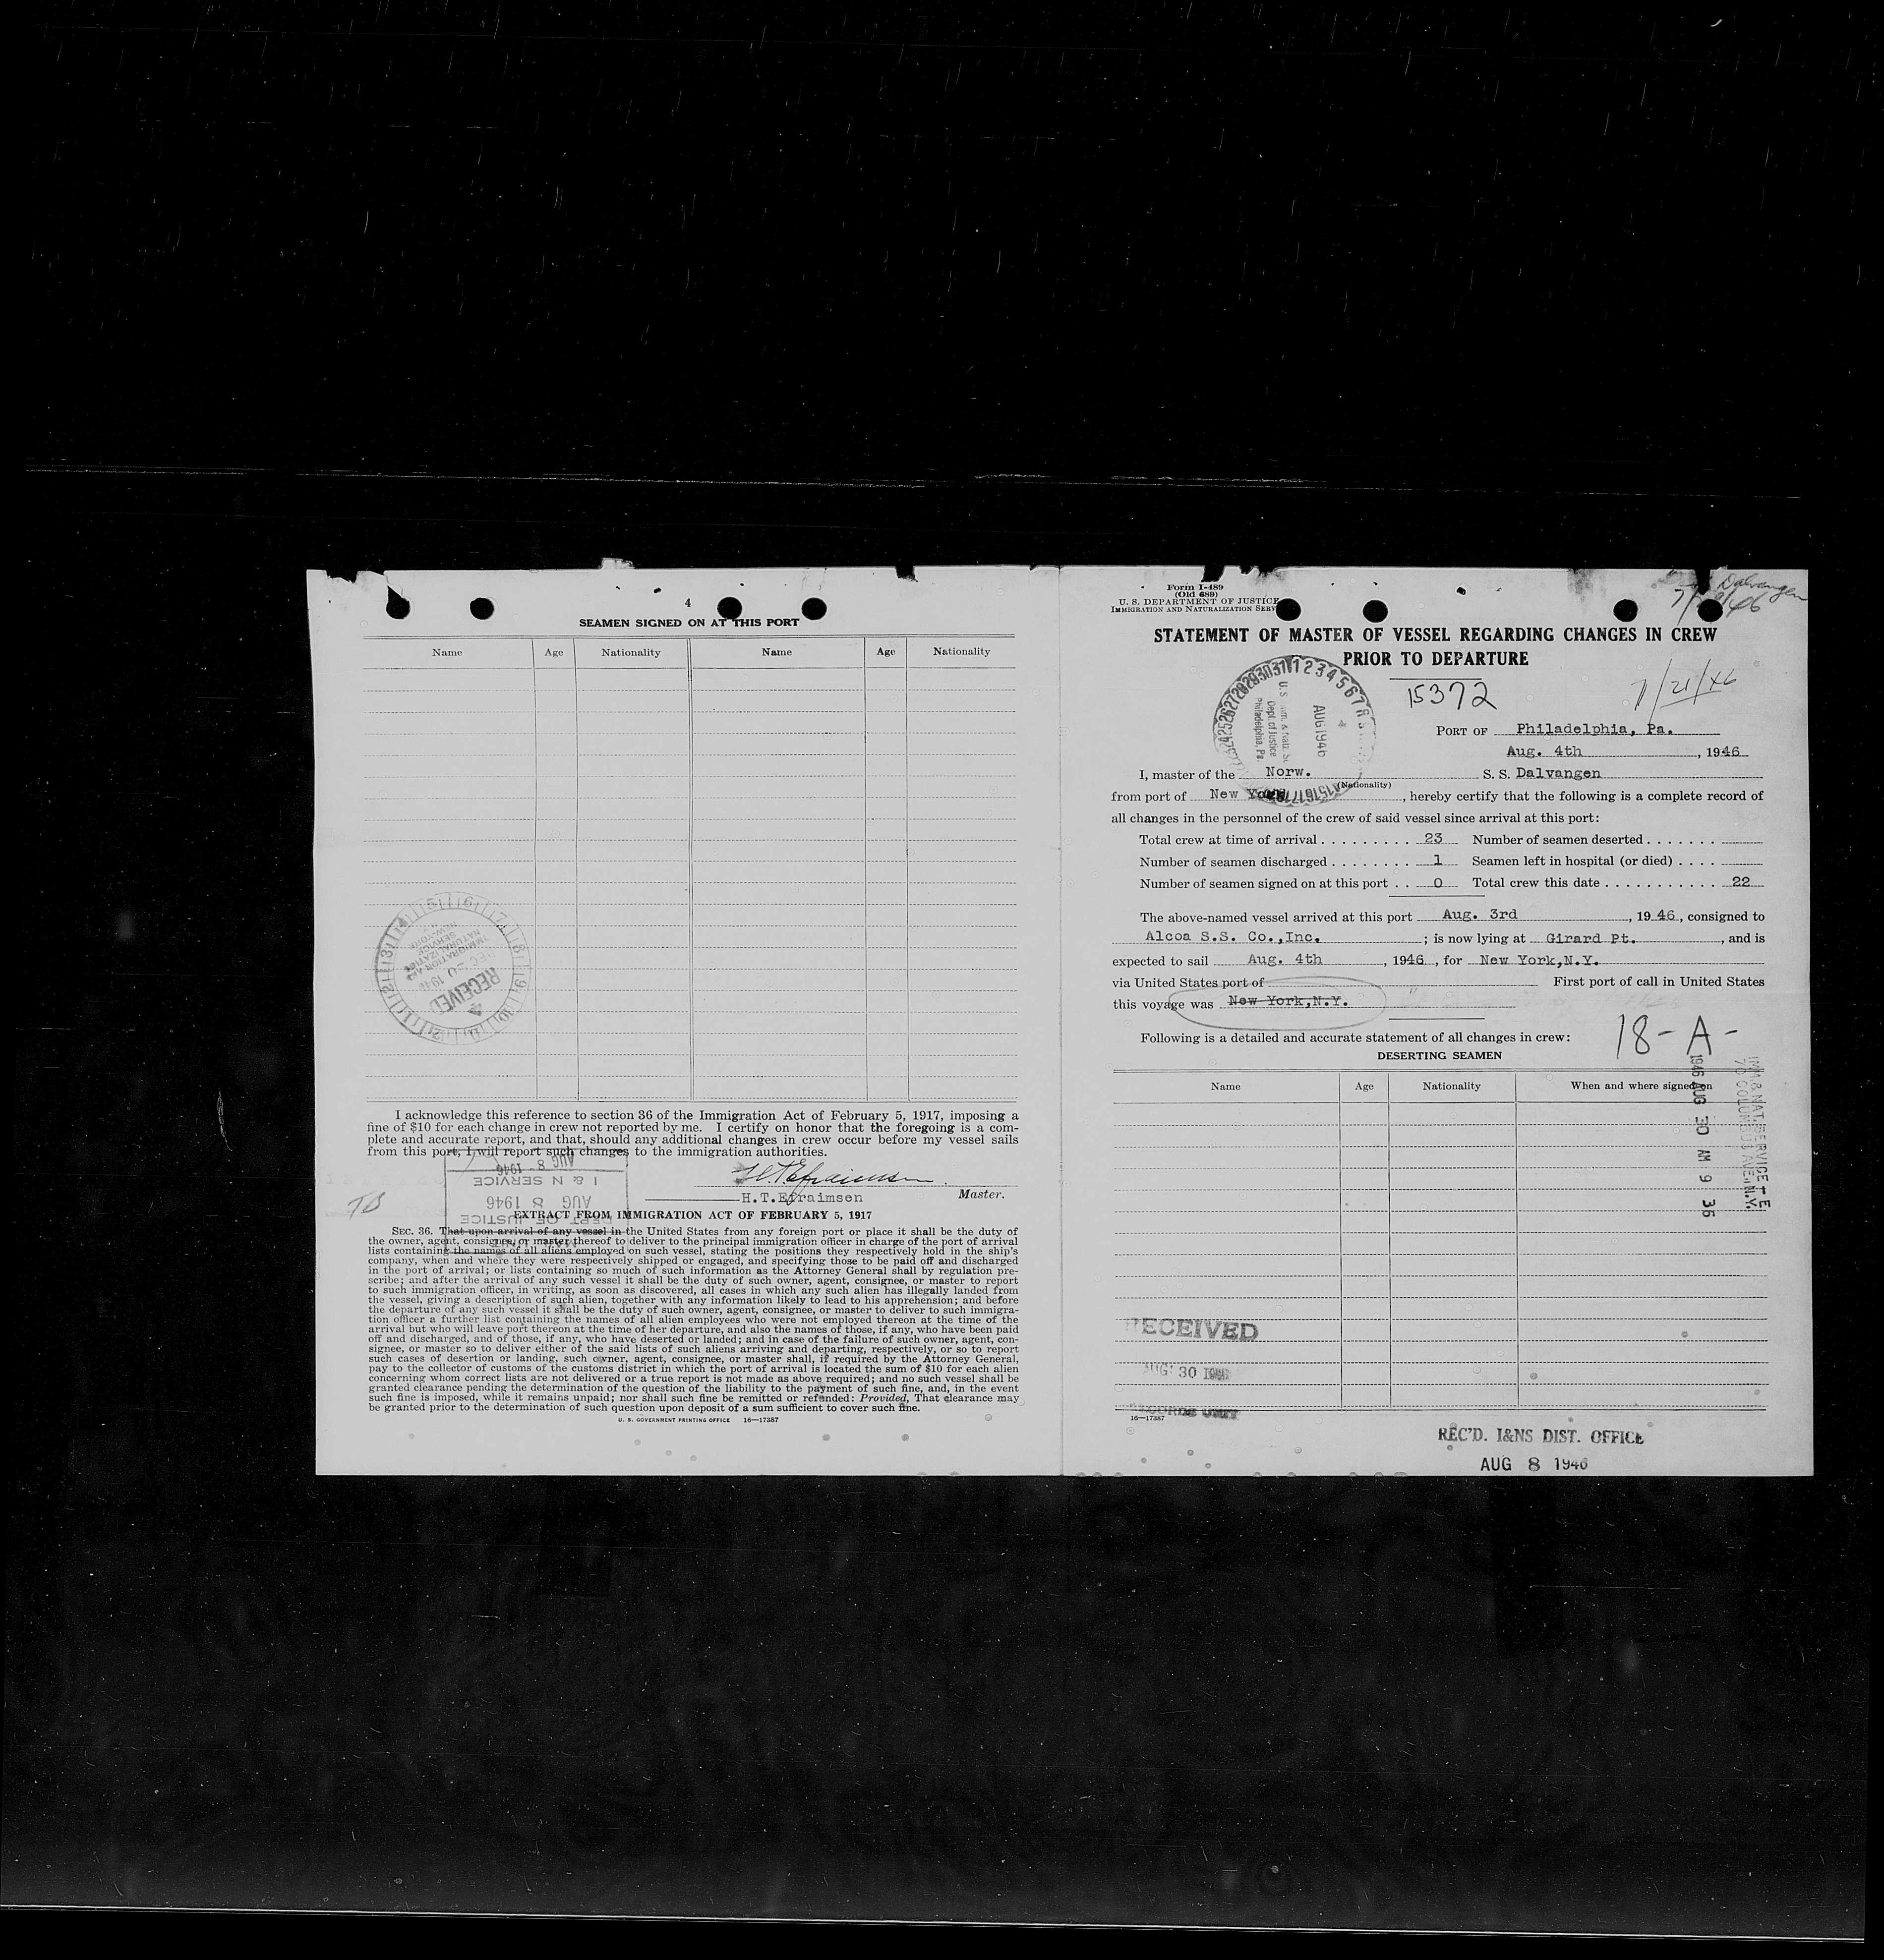 4
SEAMEN SIGNED ON AT THIS PORT
Name Age Nationality Name Age Nationality
RECEIVED
I acknowledge this reference to section 36 of the Immigration Act of February 5, 1917, imposing a
fine of $10 for each change in crew not reported by me. I certify on honor that the foregoing is a com-
plete and accurate report, and that, should any additional changes in crew occur before my vessel sails
from this port, I will report such changes to the immigration authorities.
AUG 8 - 1946
I & N SERVICE
AUG 8 1946
DEPT OF JUSTICE
H.T.Efraimsen Master.
EXTRACT FROM IMMIGRATION ACT OF FEBRUARY 5, 1917
SEC. 36. That upon arrival of any vessel in the United States from any foreign port or place it shall be the duty of
the owner, agent, consignee, or master thereof to deliver to the principal immigration officer in charge of the port of arrival
lists containing the names of all aliens employed on such vessel, stating the positions they respectively hold in the ship's
company, when and where they were respectively shipped or engaged, and specifying those to be paid off and discharged
in the port of arrival; or lists containing so much of such information as the Attorney General shall by regulation pre-
scribe; and after the arrival of any such vessel it shall be the duty of such owner, agent, consignee, or master to report
to such immigration officer, in writing, as soon as discovered, all cases in which any such alien has illegally landed from
the vessel, giving a description of such alien, together with any information likely to lead to his apprehension; and before
the departure of any such vessel it shall be the duty of such owner, agent, consignee, or master to deliver to such immigra-
tion officer a further list containing the names of all alien employees who were not employed thereon at the time of the
arrival but who will leave port thereon at the time of her departure, and also the names of those, if any, who have been paid
off and discharged, and of those, if any, who have deserted or landed; and in case of the failure of such owner, agent, con-
signee, or master so to deliver either of the said lists of such aliens arriving and departing, respectively, or so to report
such cases of desertion or landing, such owner, agent, consignee, or master shall, if required by the Attorney General,
pay to the collector of customs of the customs district in which the port of arrival is located the sum of $10 for each alien
concerning whom correct lists are not delivered or a true report is not made as above required; and no such vessel shall be
granted clearance pending the determination of the question of the liability to the payment of such fine, and, in the event
such fine is imposed, while it remains unpaid; nor shall such fine be remitted or refunded: Provided, That clearance may
be granted prior to the determination of such question upon deposit of a sum sufficient to cover such fine.
U. S. GOVERNMENT PRINTING OFFICE 16—17387
Form I-489
(Old 689)
U. S. DEPARTMENT OF JUSTICE
IMMIGRATION AND NATURALIZATION SERV
Dalvangen
STATEMENT OF MASTER OF VESSEL REGARDING CHANGES IN CREW
PRIOR TO DEPARTURE
15372
7/21/46
AUG 1946
Dept. of Justice
Philadelphia, Pa.
PORT OF Philadelphia, Pa.
Aug. 4th, 1946
I, master of the Norw. S. S. Dalvangen
(Nationality)
from port of New York, hereby certify that the following is a complete record of
all changes in the personnel of the crew of said vessel since arrival at this port:
Total crew at time of arrival . . . . . . . . . 23 Number of seamen deserted . . . . . . .
Number of seamen discharged . . . . . . . . 1 Seamen left in hospital (or died) . . . .
Number of seamen signed on at this port . . 0 Total crew this date . . . . . . . . . . . 22
The above-named vessel arrived at this port Aug. 3rd, 1946, consigned to
Alcoa S.S. Co.,Inc. ; is now lying at Girard Pt., and is
expected to sail Aug. 4th, 1946, for New York,N.Y.
via United States port of First port of call in United States
this voyage was New York,N.Y.
Following is a detailed and accurate statement of all changes in crew:
18-A-
DESERTING SEAMEN
Name Age Nationality When and where signed on
1946 AUG 30 AM 9 35
IMM & NAT. SERVICE
70 COLUMBUS AVE. N.Y.
RECEIVED
AUG 30 1946
RECORDS UNIT
16—17387
REC'D. I&NS DIST. OFFICE
AUG 8 1946